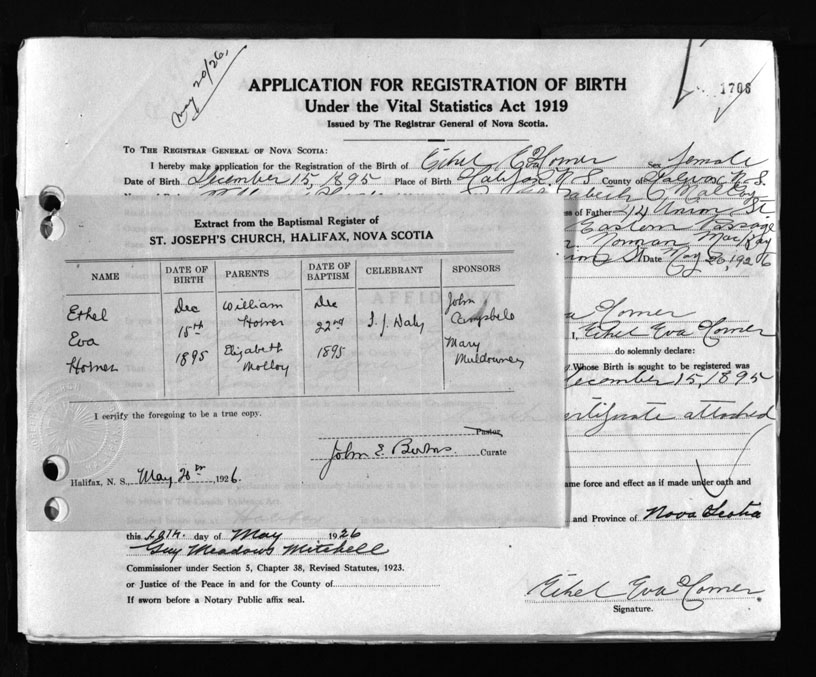 May 20/26,
APPLICATION FOR REGISTRATION OF BIRTH
1706
Under the Vital Statistics Act 1919
Issued by The Registrar General of Nova Scotia.
TO THE REGISTRAR GENERAL OF NOVA SCOTIA:
I hereby make application for the Registration of the Birth of Ethel Eva Homer Sex female
Date of Birth December 15, 1895 Place of Birth Halifax, N.S. County of Halifax N.S.
Elizabeth Malloy
ss of Father 74 Union St
Eastern Passage
Norman MacKay
St Date May 20, 1926
Extract from the Baptismal Register of
ST. JOSEPH'S CHURCH, HALIFAX, NOVA SCOTIA
NAME DATE OF BIRTH PARENTS DATE OF BAPTISM CELEBRANT SPONSORS
Ethel Dec William Dec John
15th Homer 22nd Campbell
Eva Mary
Homer 1895 Elizabeth Molloy 1895 Muldowney
I certify the foregoing to be a true copy.
Pastor
John E. Burns. Curate
Halifax, N. S., May 20th 1926.
Homer
I, Ethel Eva Homer
do solemnly declare:
Whose Birth is sought to be registered was
December 15, 1895
certificate attached
ame force and effect as if made under oath and
and Province of Nova Scotia
this 20th. day of May 1926
Guy Meadows Mitchell
Commissioner under Section 5, Chapter 38, Revised Statutes, 1923.
or Justice of the Peace in and for the County of
If sworn before a Notary Public affix seal.
Ethel Eva Homer
Signature.